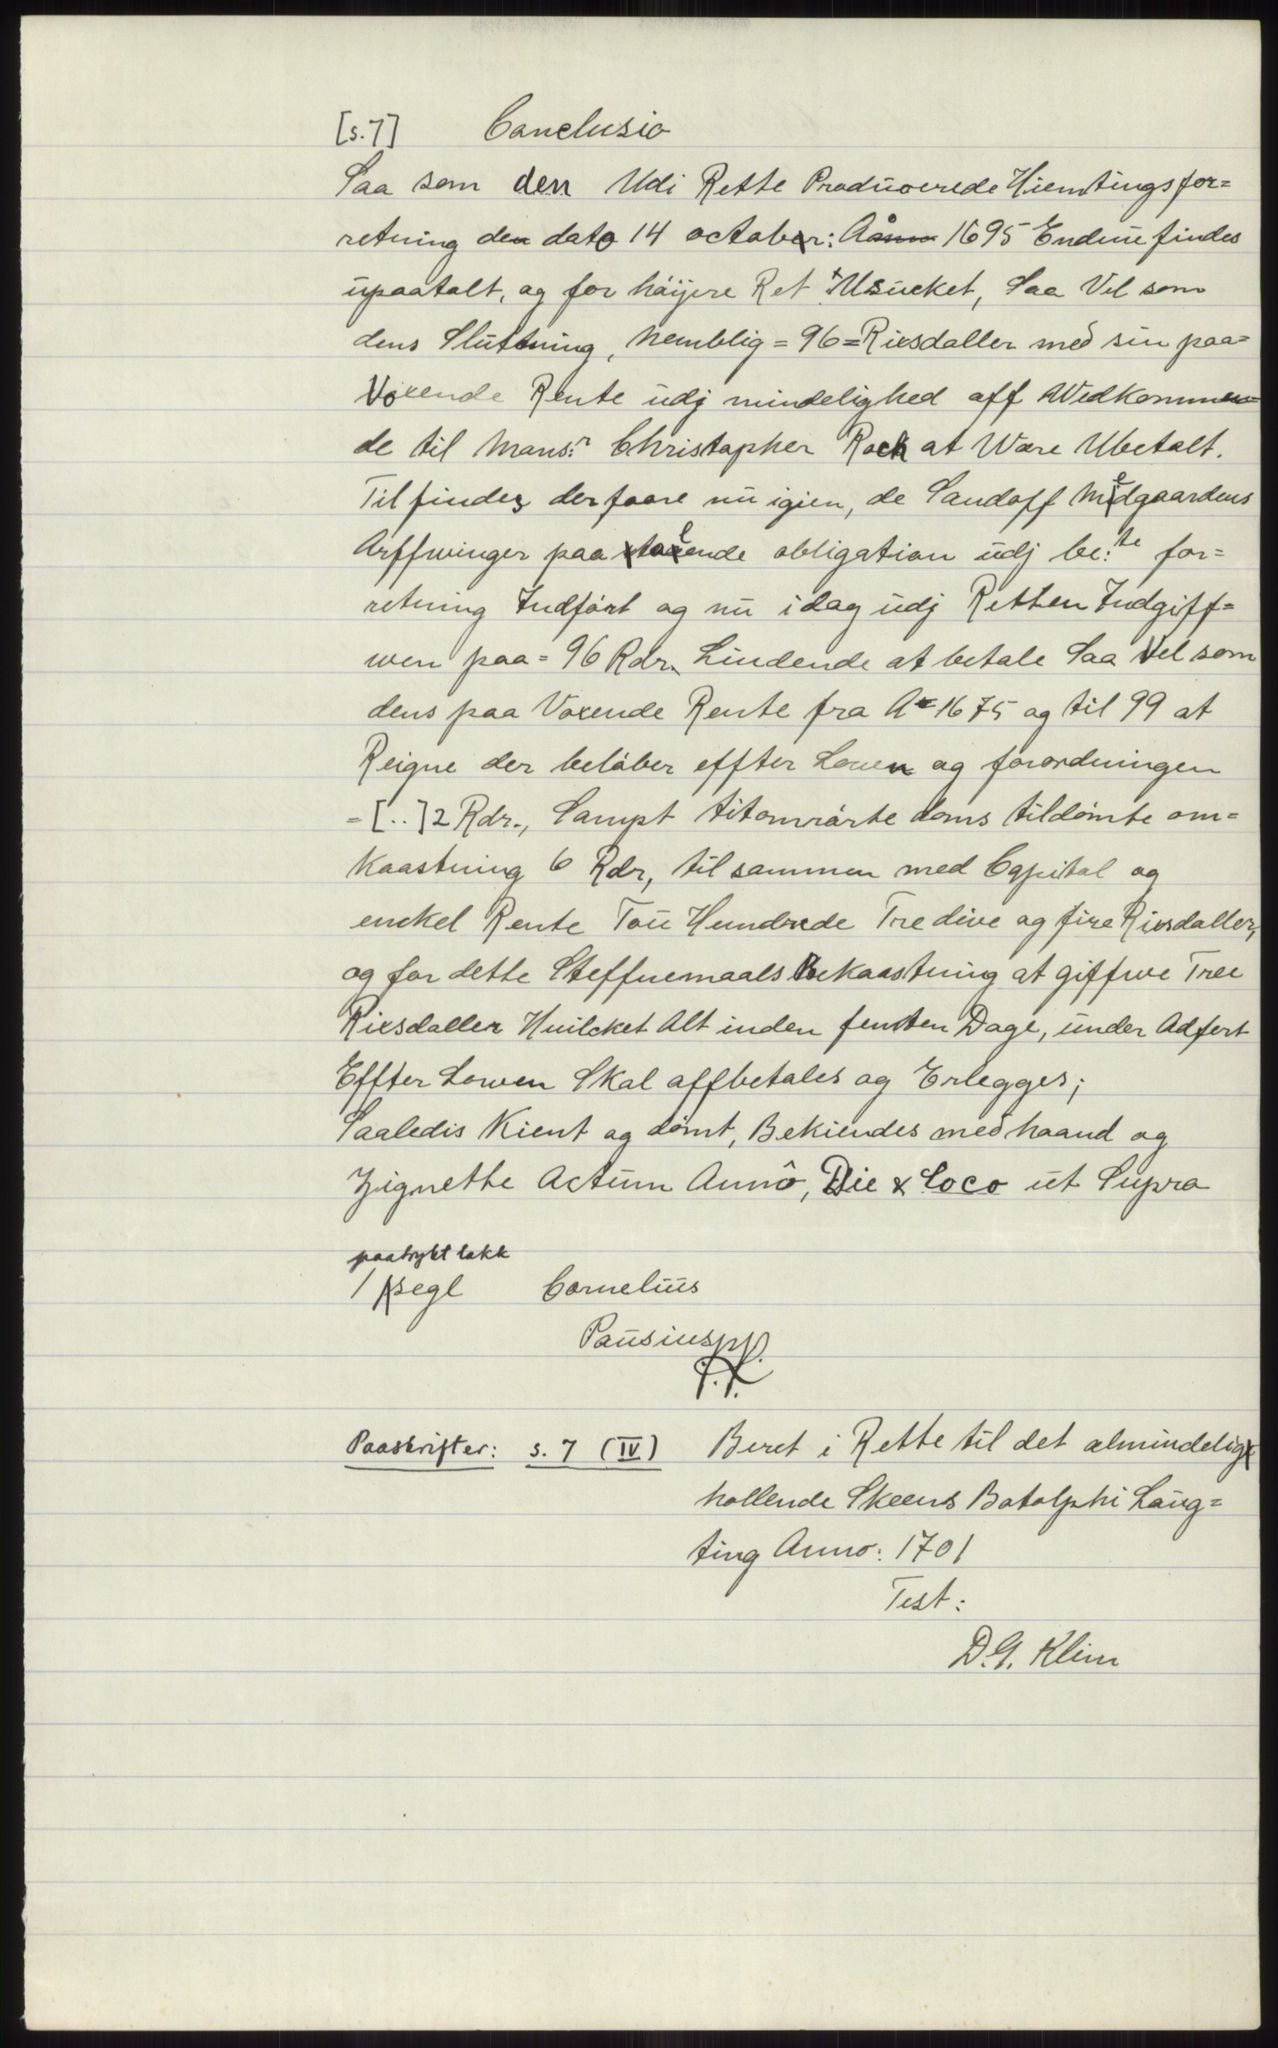 [s.7] Conclusio
Saa som den Udi Rette Producerede Hiemtingsfor=
retning den dato 14 octobr: Aº 1695 Endnu findes
upaatalt, og for höijere Ret Usücket, Saa Vel som
dens Slutning, Nemblig = 96 = Rixsdaller med sin paa=
Voxende Rente udj mindelighed aff Wedkommen=
de til Mons:r Christopher Rock at Wære Ubetalt.
Til findes derfoore nu igien, de Sandoff Medgaardens
Arffwinger paa ende obligation udj be:te for=
retning Indført og nu idag udj Retten Indgiff=
wen paa = 96 Rdr. Liudende at betale Saa Vel som
dens paa Voxende Rente fra Aº 1675 og til 99 at
Reigne der beløber effter Lowen og forordningen
= [..]2 Rdr., Sampt titomrørte doms tildømte om=
Kaastning 6 Rdr, til sammen med Capital og
enckel Rente Tou Hundrede Tredive og fire Rixsdaller,
og for dette Steffnemaals Bekaastning at giffwe Tree
Rixsdaller Huilcket Alt inden femten Dage, under Adfert
Effter Lowen Skal affbetales og Erlegges;
Saaledis Kient og dømt, Bekiendes med haand og
Zignette Actum Annô, Die & Loco ut Supra
paatrykt lakk
1 segl Cornelius
Pausius pp.
Paaskrifter: s. 7 (IV) Beret i Rette til det almindelig
hollende Skeens Botolphi Laug=
ting Anno: 1701
Test:
D.G. Klim